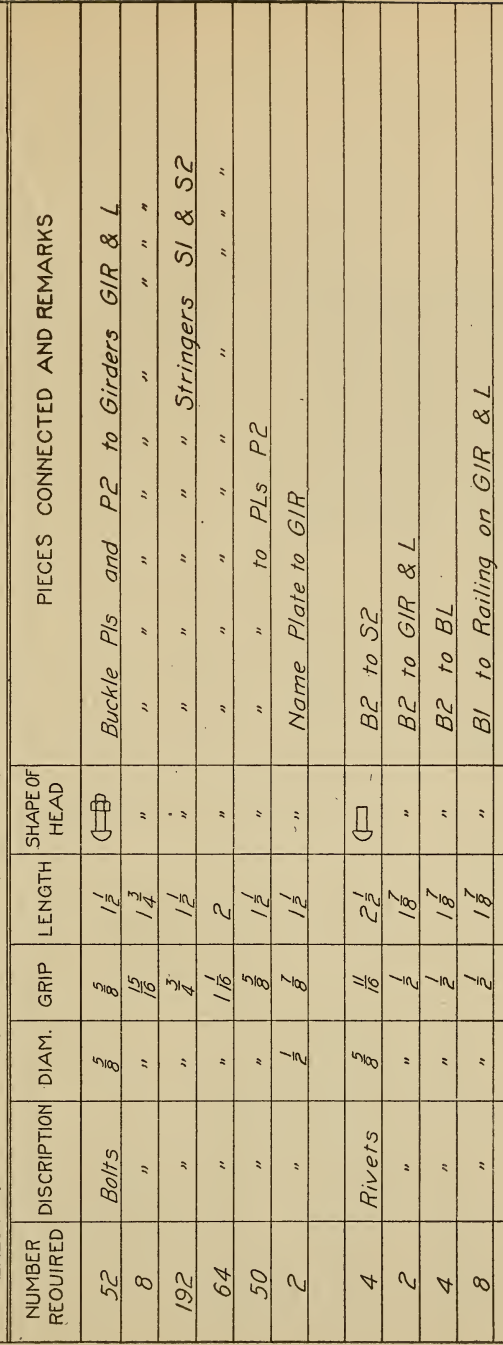 NUMBER REQUIRED DISCRIPTION DIAM. GRIP LENGTH SHAPE OF HEAD PIECES CONNECTED AND REMARKS
52 Bolts 5/8 5/8 1 1/2 Buckle Pls and P2 to Girders G1R & L
8 " " 15/16 1 3/4 " " " " " " " " "
192 " " 3/4 1 1/2 " " " " " " Stringers S1 & S2
64 " " 1 1/16 2 " " " " " " " " " "
50 " " 5/8 1 1/2 " " " to PLs P2
2 " 1/2 7/8 1 1/2 " Name Plate to G1R
4 Rivets 5/8 11/16 2 1/2 B2 to S2
2 " " 1/2 1 7/8 " B2 to G1R & L
4 " " 1/2 1 7/8 " B2 to BL
8 " " 1/2 1 7/8 " B1 to Railing on G1R & L